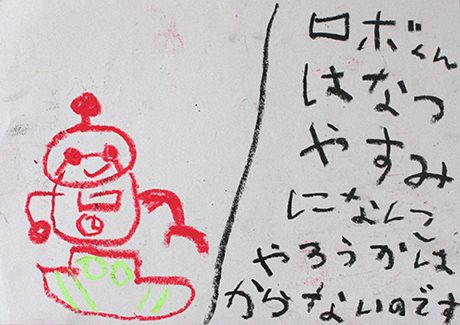 ロボくん
はなつ
やすみ
になにこ
やろうかは
からないのです